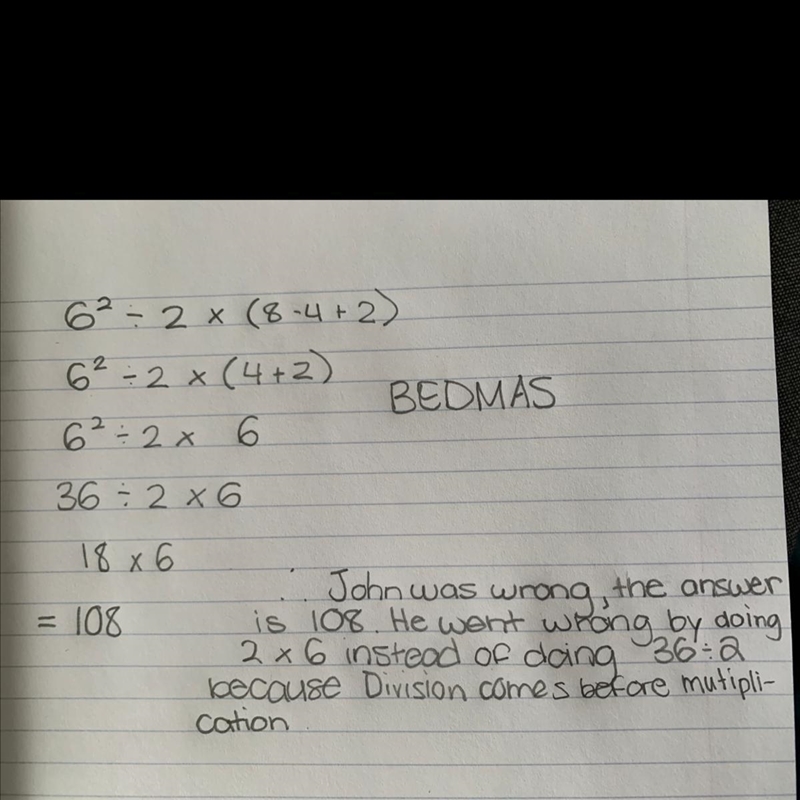 6² ÷ 2 × (8-4+2)
6² ÷ 2 × (4+2)
BEDMAS
6² ÷ 2 × 6
36 ÷ 2 × 6
18 × 6
= 108
∴ John was wrong, the answer
is 108. He went wrong by doing
2 × 6 instead of doing 36÷2
because Division comes before mutipli-
cation.